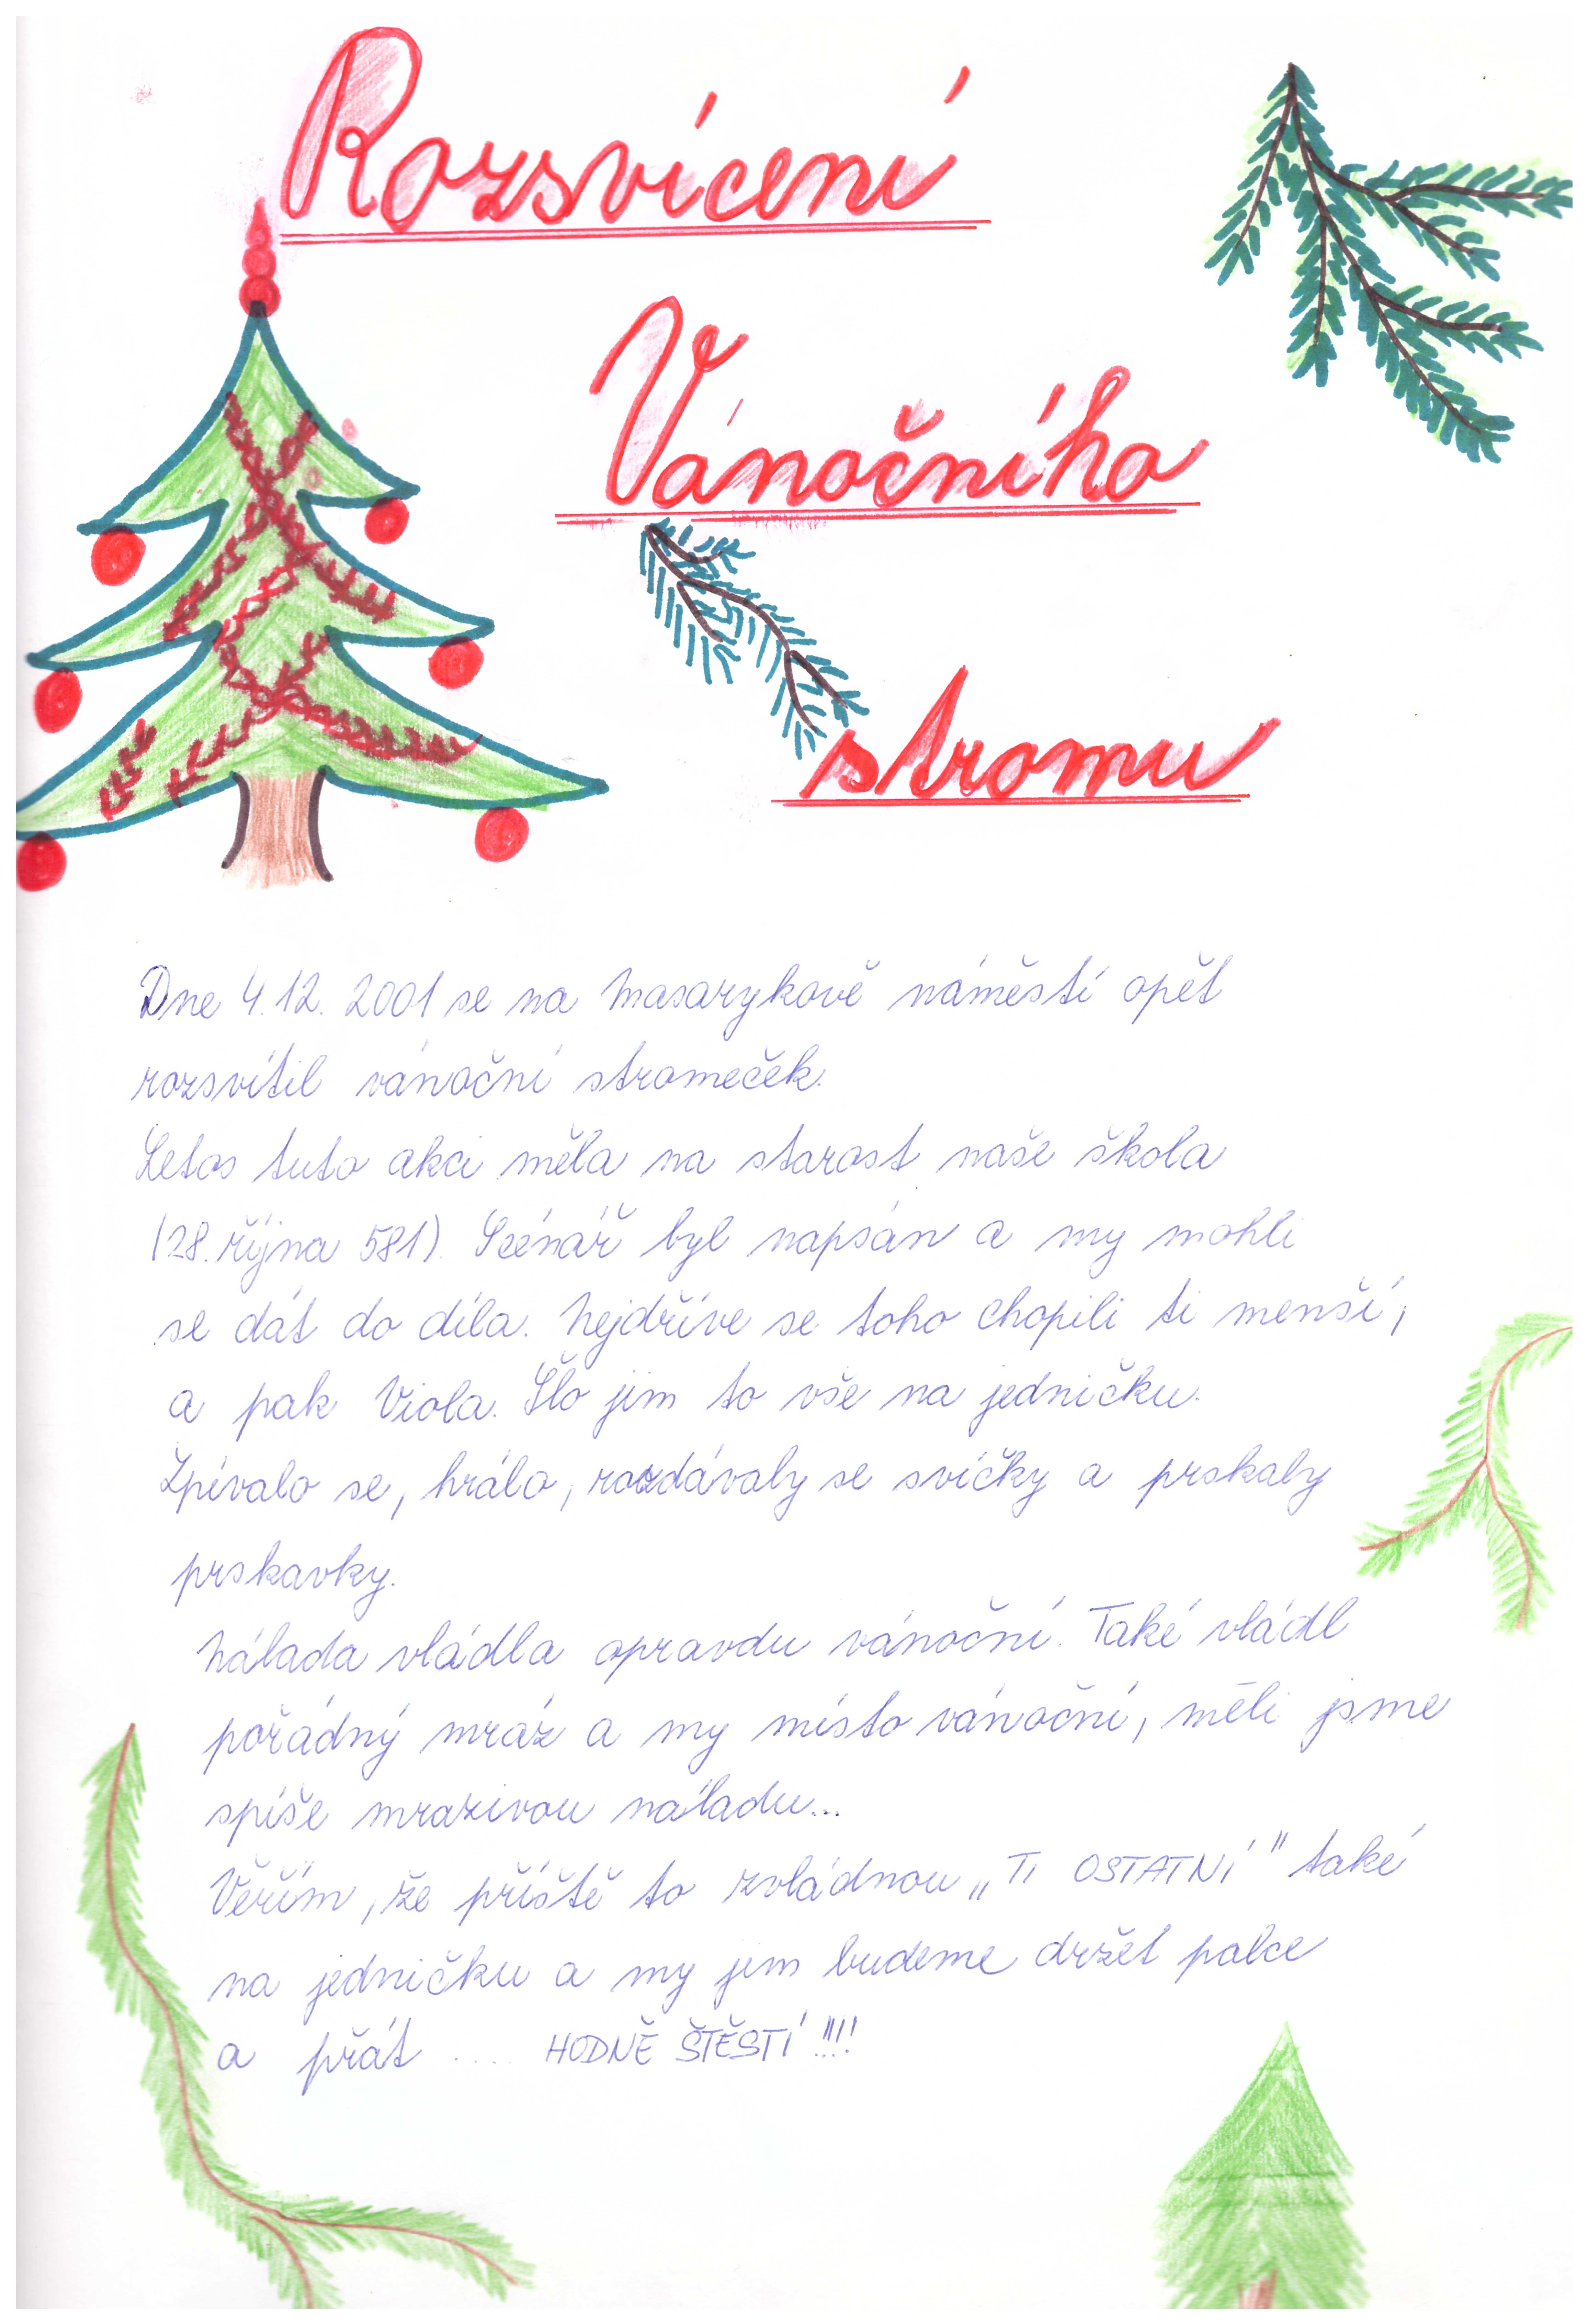 Rozsvícení
Vánočního
stromu
Dne 4.12. 2001 se na Masarykově náměstí opět
rozsvítil vánoční stromeček.
Letos tuto akci měla na starost naše škola
(28. října 581). Scénář byl napsán a my mohli
se dát do díla. Nejdříve se toho chopili ti menší,
a pak Viola. Šlo jim to vše na jedničku.
Zpívalo se, hrálo, rozdávaly se svíčky a prskaly
prskavky.
Nálada vládla opravdu vánoční. Také vládl
pořádný mráz a my místo vánoční, měli jsme
spíše mrazivou náladu...
Věřím, že příště to zvládnou „TI OSTATNÍ" také
na jedničku a my jim budeme držet palce
a přát .... HODNĚ ŠTĚSTÍ !!!!